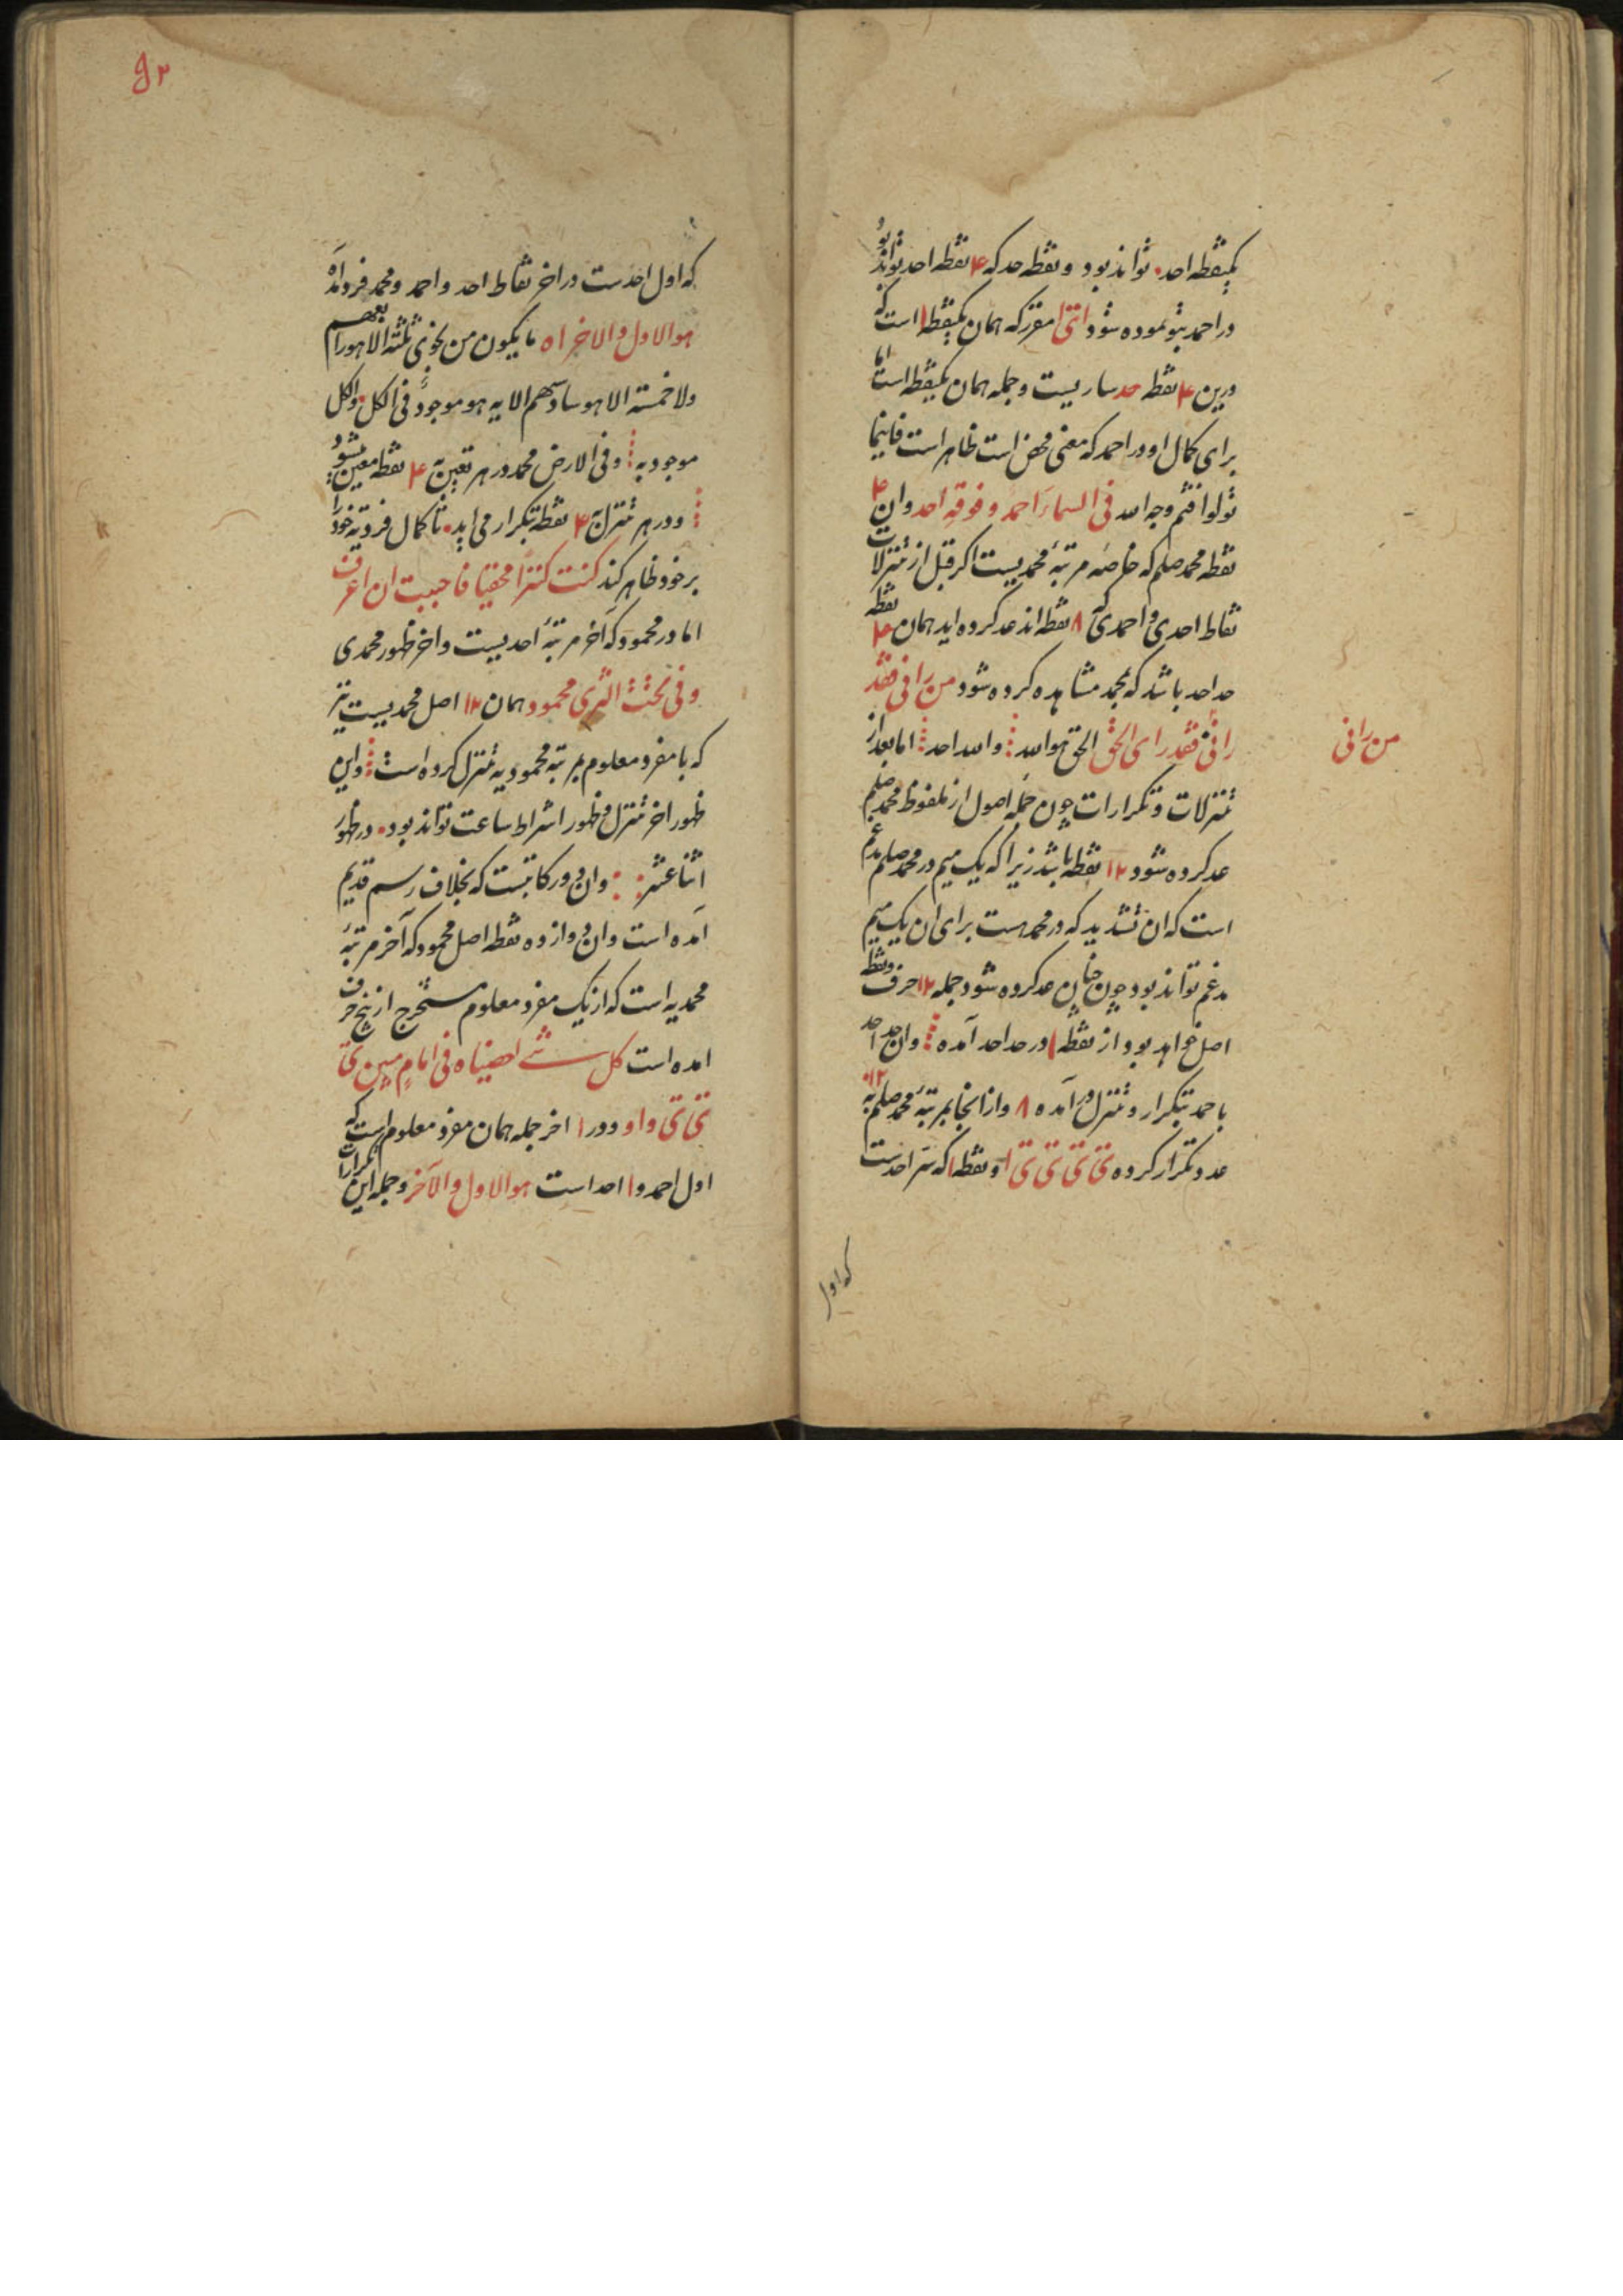 یکنقطه احد تواند بود و نقطه حد که ۴ نقطه احد تواند بود
در احمد بتو نموده شود اتی ا مفرد که همان یکنقطه ا است که
درین ۴ نقطه حد ساریست و جمله همان یکنقطه است اما
برای کمال او در احمد که معنی محض است ظاهر است فاینما
تولوا فثم وجه الله فی السماء احمد و فوقه احد و ان ۴
نقطه محمد صلعم که خاصه مرتبهٔ محمدیست اگر قبل از تنزلات
نقاط احدی و احمدی که ۸ نقطه اند عد کرده اید همان ۴ نقطه
حد احد باشد که بمحمد مشاهده کرده شود من رانی فقد
رانی فقد رای الحق الحق هو الله والله احد اما بعد از
من رانی
تنزلات و تکرارات چون جمله اصول از ملفوظ محمد صلعم
عد کرده شود ۱۲ نقطه باشد زیرا که یک میم در محمد صلعم مدغم
است که ان تشدید که در محمد است برای ان یک میم
مدغم تواند بود چون چنان عد کرده شود جمله ۱۲ حرف و نقطه
اصل خواهد بود از نقطه ا در حد احد آمده و ان حد احد
باحمد بتکرار و تنزل در آمده ۸ و از انجا بمرتبهٔ محمد صلعم به ۱۲
عدد تکرار کرده ی ی ی ی ا و نقطه ا که سر احدست
که اول
۹۲
که اول احدست در اخر نقاط احد و احمد و محمد فرد آمد
هو الاول والاخر اه ما یکون من نجوی ثلثة الا هو رابعهم
ولا خمسة الا هو سادسهم الا یه هو موجود فی الکل والکل
موجود به و فی الارض محمد در هر تعین به ۴ نقطه معین میشود
و در هر تنزل به ۴ نقطه تکرار می اید تا کمال فردیة خود را
بر خود ظاهر کند کنت کنزا مخفیا فاحببت ان اعرف
اما در محمود که آخر مرتبهٔ احدیست و اخر ظهور محمدی
و فی تحت الثری محمود همان ۱۲ اصل محمدیست نیز
که با مفرد معلوم بمرتبه محمودیه تنزل کرده است و این
ظهور اخر تنزل و ظهور اشراط ساعت تواند بود در ظهور
اثنا عشر و ان در کاتبست که بخلاف رسم قدیم
آمده است و ان دوازده نقطه اصل محمود که آخر مرتبهٔ
محمدیه است که از یک مفرد معلوم مستخرج از پنج حرف
امده است کل شیء احصیناه فی امام مبین ی
ی ی و او و در ا اخر جمله همان مفرد معلوم است که
اول احمد و ا احد است هو الاول و الآخر و جمله این تکرارات